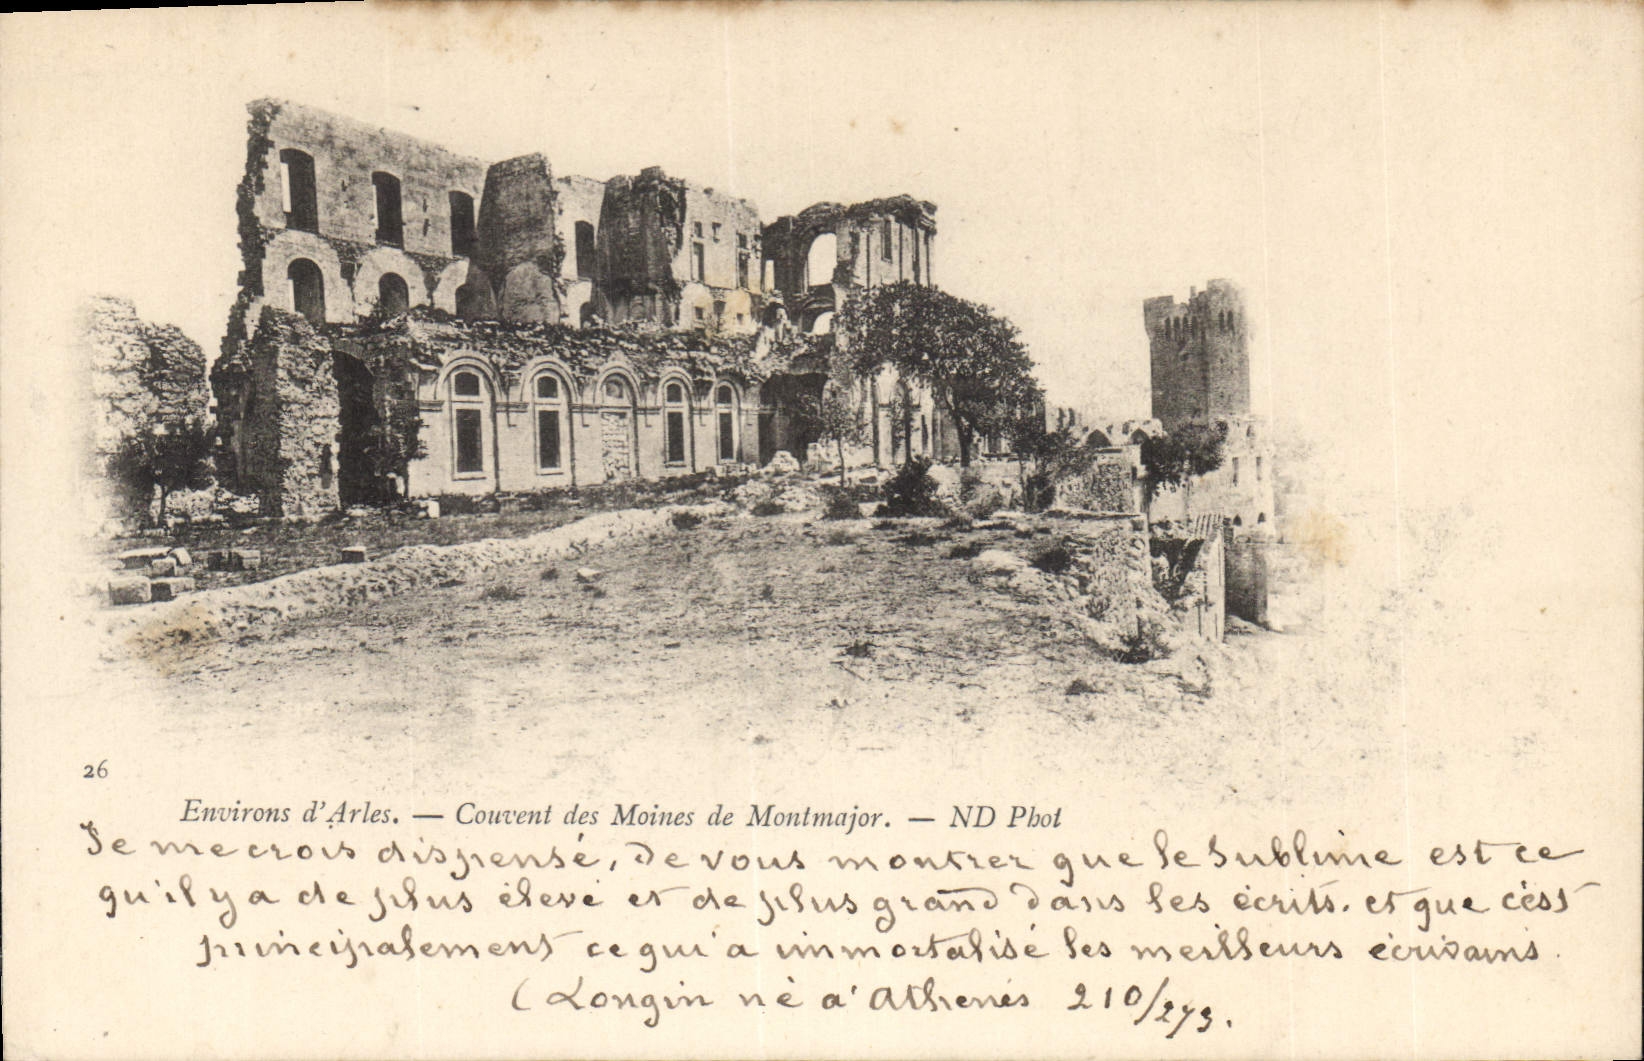 26
Environs d'Arles. — Couvent des Moines de Montmajor. — ND Phot
Je me crois dispensé, de vous montrer que le Sublime est ce
qu'il y a de plus élevé et de plus grand dans les écrits. et que c'est
principalement ce qui a immortalisé les meilleurs écrivains.
(Longin né a' Athenes 210/273.